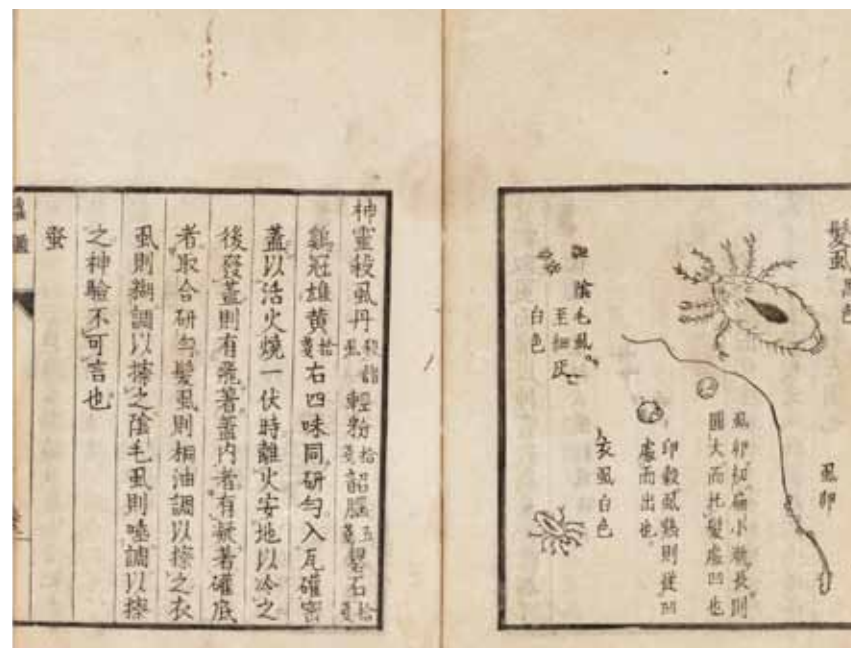 髮虱黑色
虱卵
虱卵初扁小漸長則
圓大而托髮處凹也
卵殼虱熟則從凹
處而出也
衣虱白色
陰毛虱
至細正
白色
神靈殺虱丹殺諸虱輕粉拾戔韶腦五戔礜石拾戔
鷄冠雄黃拾戔右四味同研勻入瓦礶密
蓋以活火燒一伏時離火安地以冷之
後發蓋則有飛著蓋内者有凝著礶底
者取合研勻髮虱則桐油調以搽之衣
虱則糊調以搽之陰毛虱則唾調以搽
之神驗不可言也
蚤